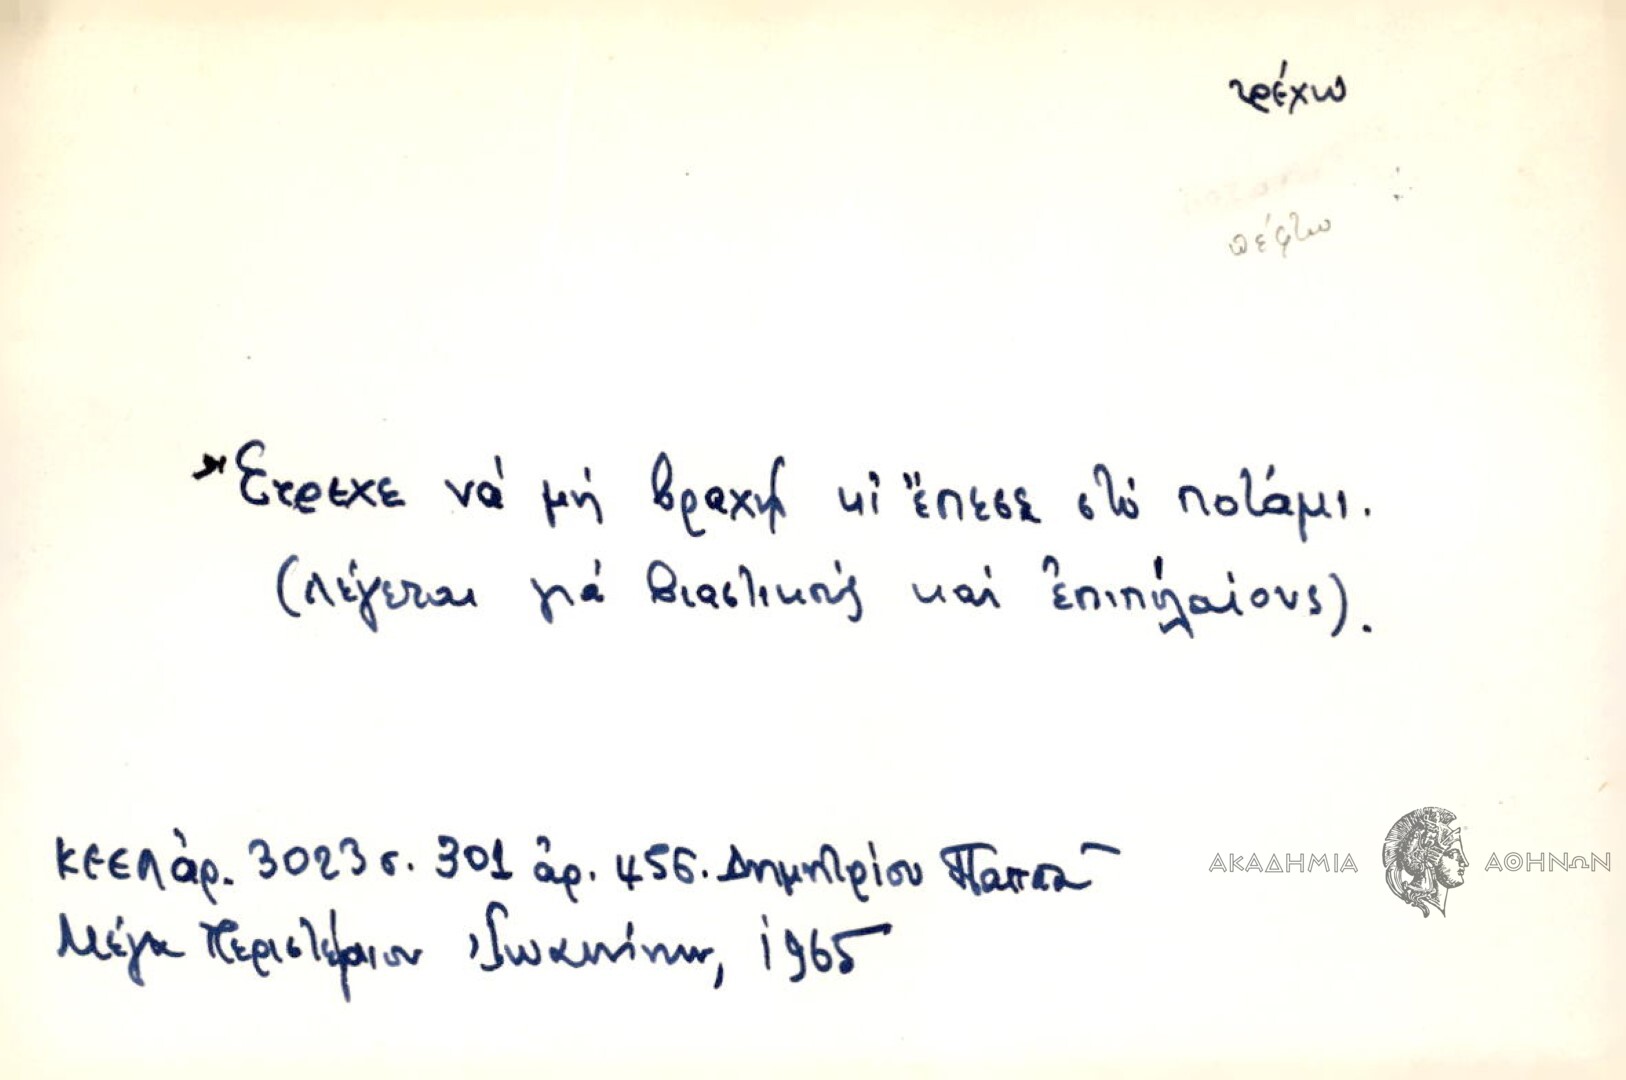 τρέχω
πέφτω
Ἔτρεχε νά μή βραχῇ κι ἔπεσε στό ποτάμι.
(λέγεται γιά βιαστικούς καί ἐπιπόλαιους).
ΚΕΕΛ ἀρ. 3023 σ. 301 ἀρ. 456. Δημητρίου Παππᾶ
Μέγα Περιστέριον Ἰωαννίνων, 1965
ΑΚΑΔΗΜΙΑ ΑΘΗΝΩΝ